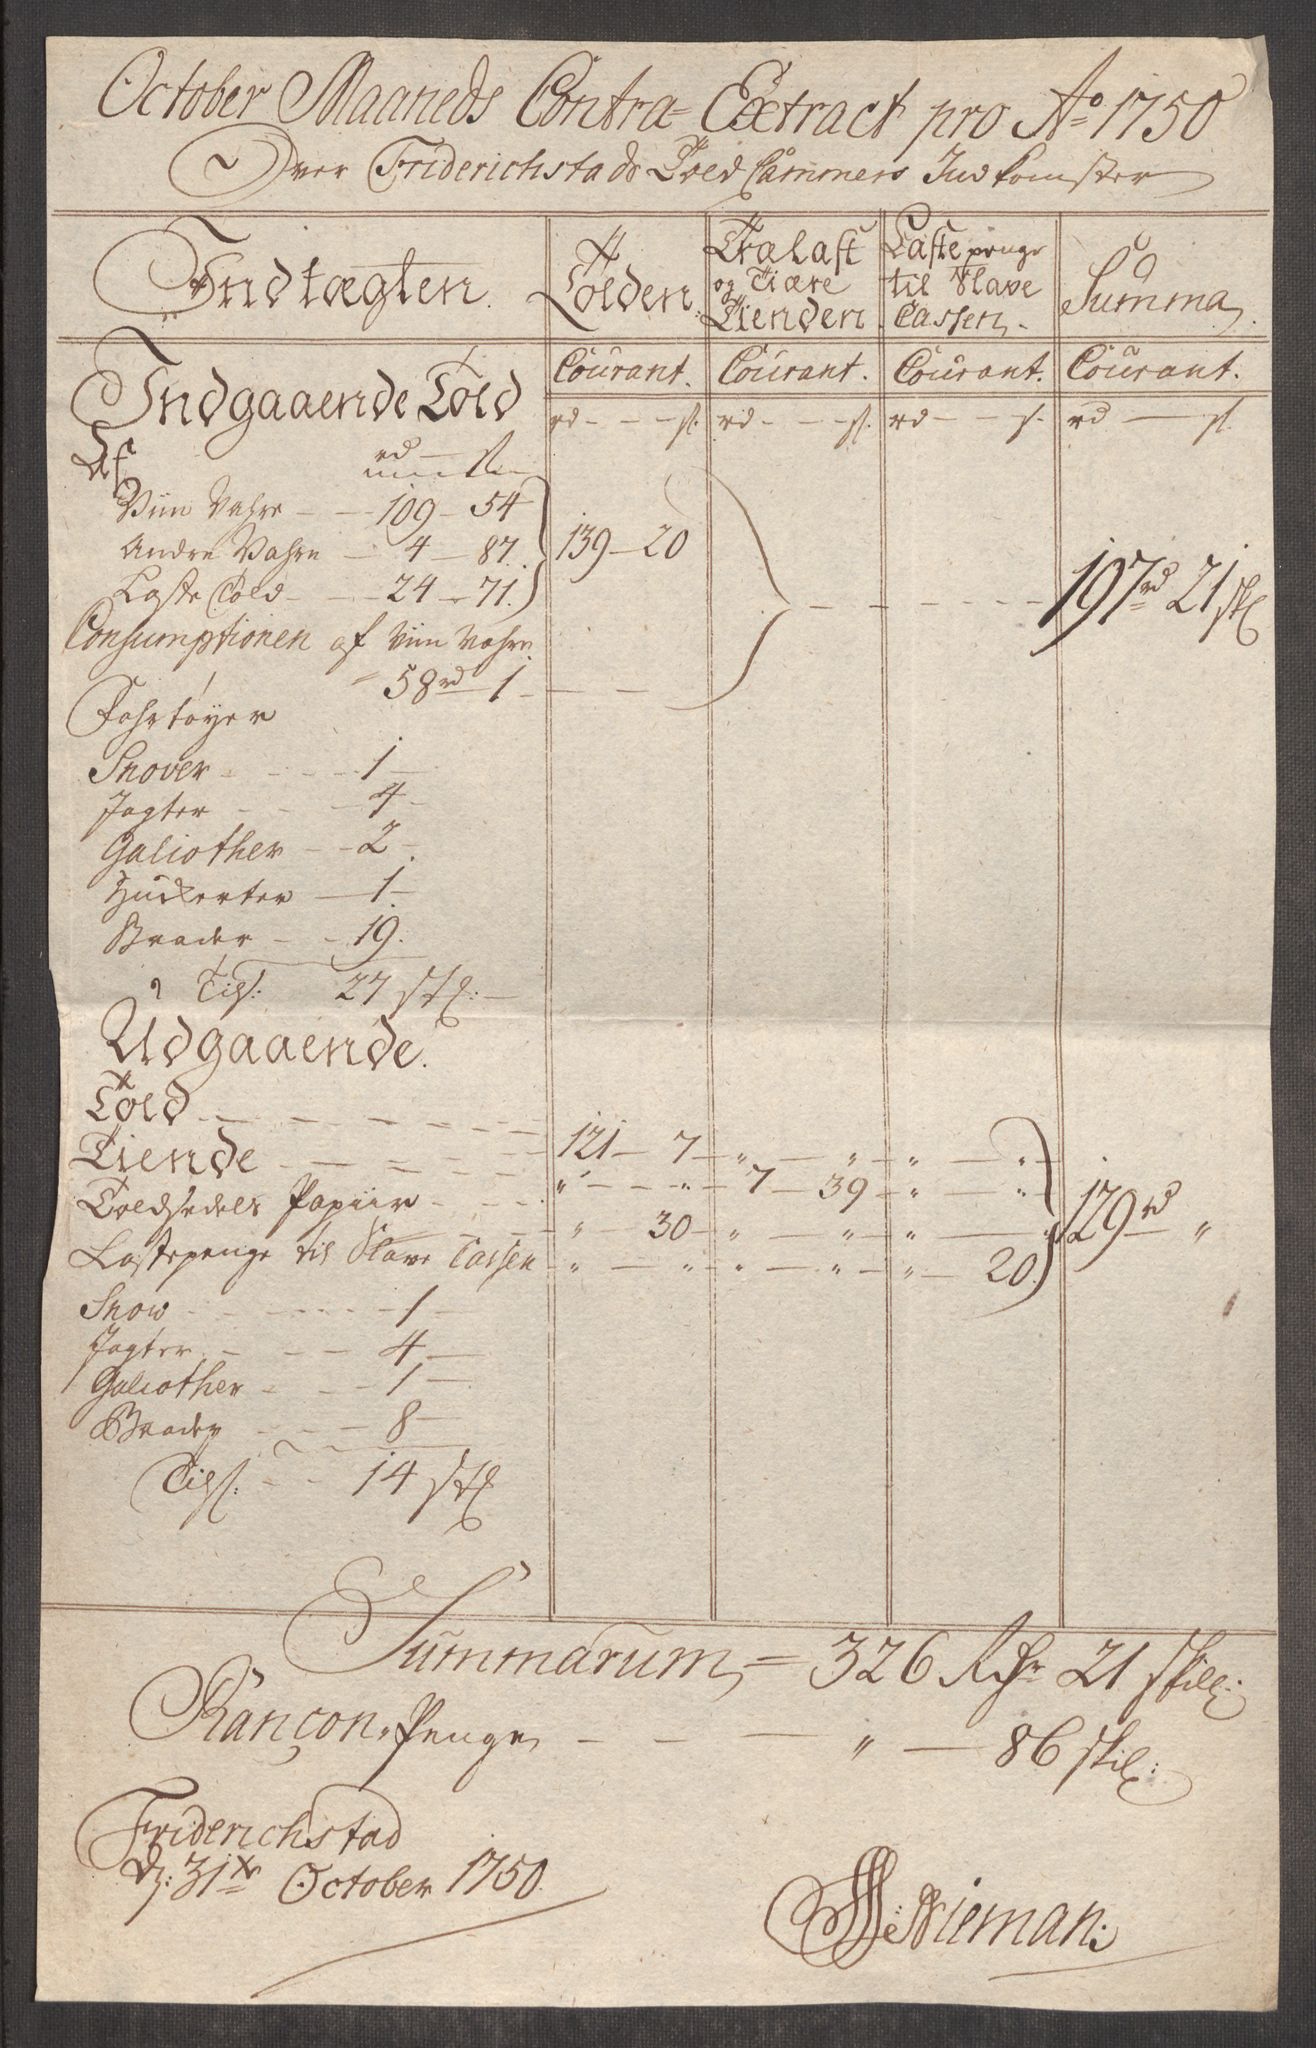 October Maaneds Contra-Extract pro Ao 1750
Over Friderichstads Told Cammers Indkomster
Indtægten. Tolden. Trælast og Tiære Tienden Laste penge til Slave Cassen. Summa
Indgaaende Told Courant. Courant. Courant. Courant.
rd - - - s. rd - - - s. rd - - s. rd - s.
Af rd - s
Viin Vahre - - 109 - 54
Andre Vahre - 4 - 87. 139 - 20
197rd 21 skl
Laste Told - - - 24 - 71.
Consumptionen af Viin Vahre
" 58rd 1 - - -
Fahrtøyer
Snover - - - - 1 -
Jagter - - - 4 -
Galiother - - 2 -
Huckerter - 1.
Skader - - 19.
Tils: 27 stk: -
Udgaaende.
Told - - - - - 121 - 7 - " - " - " - " -
Tiende - - - - " - " - 7 - 39 - " - "
Toldsedels Papiir - - - " 30 - " - " - " - " 129rd "
Lastepenge til Slave Cassen - " - " - " - " - " - 20.
Snow - - - - - 1 -
Jagter - - - 4 -
Galiother - - - 1 -
Skader - - - 8 -
Tils: - - 14 stk
Summarum, = 326 Rdr 21 skill:
Rançon, Penge - - - " - 86 skil:
Friderichstad
d: 31te October 1750.
Nieman: